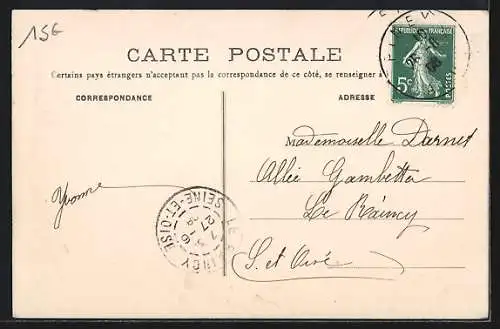 15G
CARTE POSTALE
Certains pays étrangers n'acceptant pas la correspondance de ce côté, se renseigner à
CORRESPONDANCE
ADRESSE
REPUBLIQUE FRANÇAISE
5c
POSTES
Mademoiselle Darnet
Allée Gambetta
Le Raincy
S. et Oise
Yvonne
LE RAINCY
SEINE-ET-OISE
27